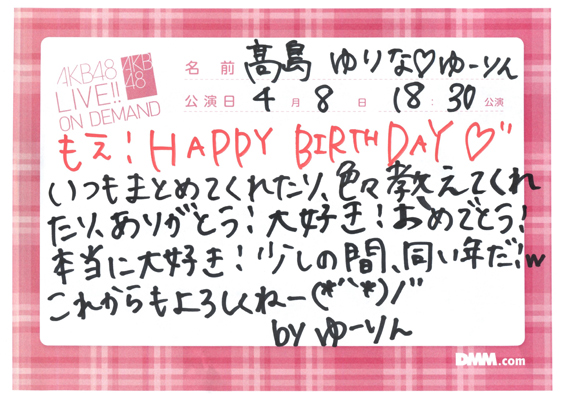 AKB48
LIVE!!
ON DEMAND
AKB
48
名前 髙島 ゆりな♡ゆーりん
公演日 4月8日 18:30公演
もえ!HAPPY BIRTHDAY♡"
いつもまとめてくれたり、色々教えてくれ
たり、ありがとう!大好き!おめでとう!
本当に大好き!少しの間、同い年だ!w
これからもよろしくねー(*´`*)/"
by ゆーりん
DMM.com